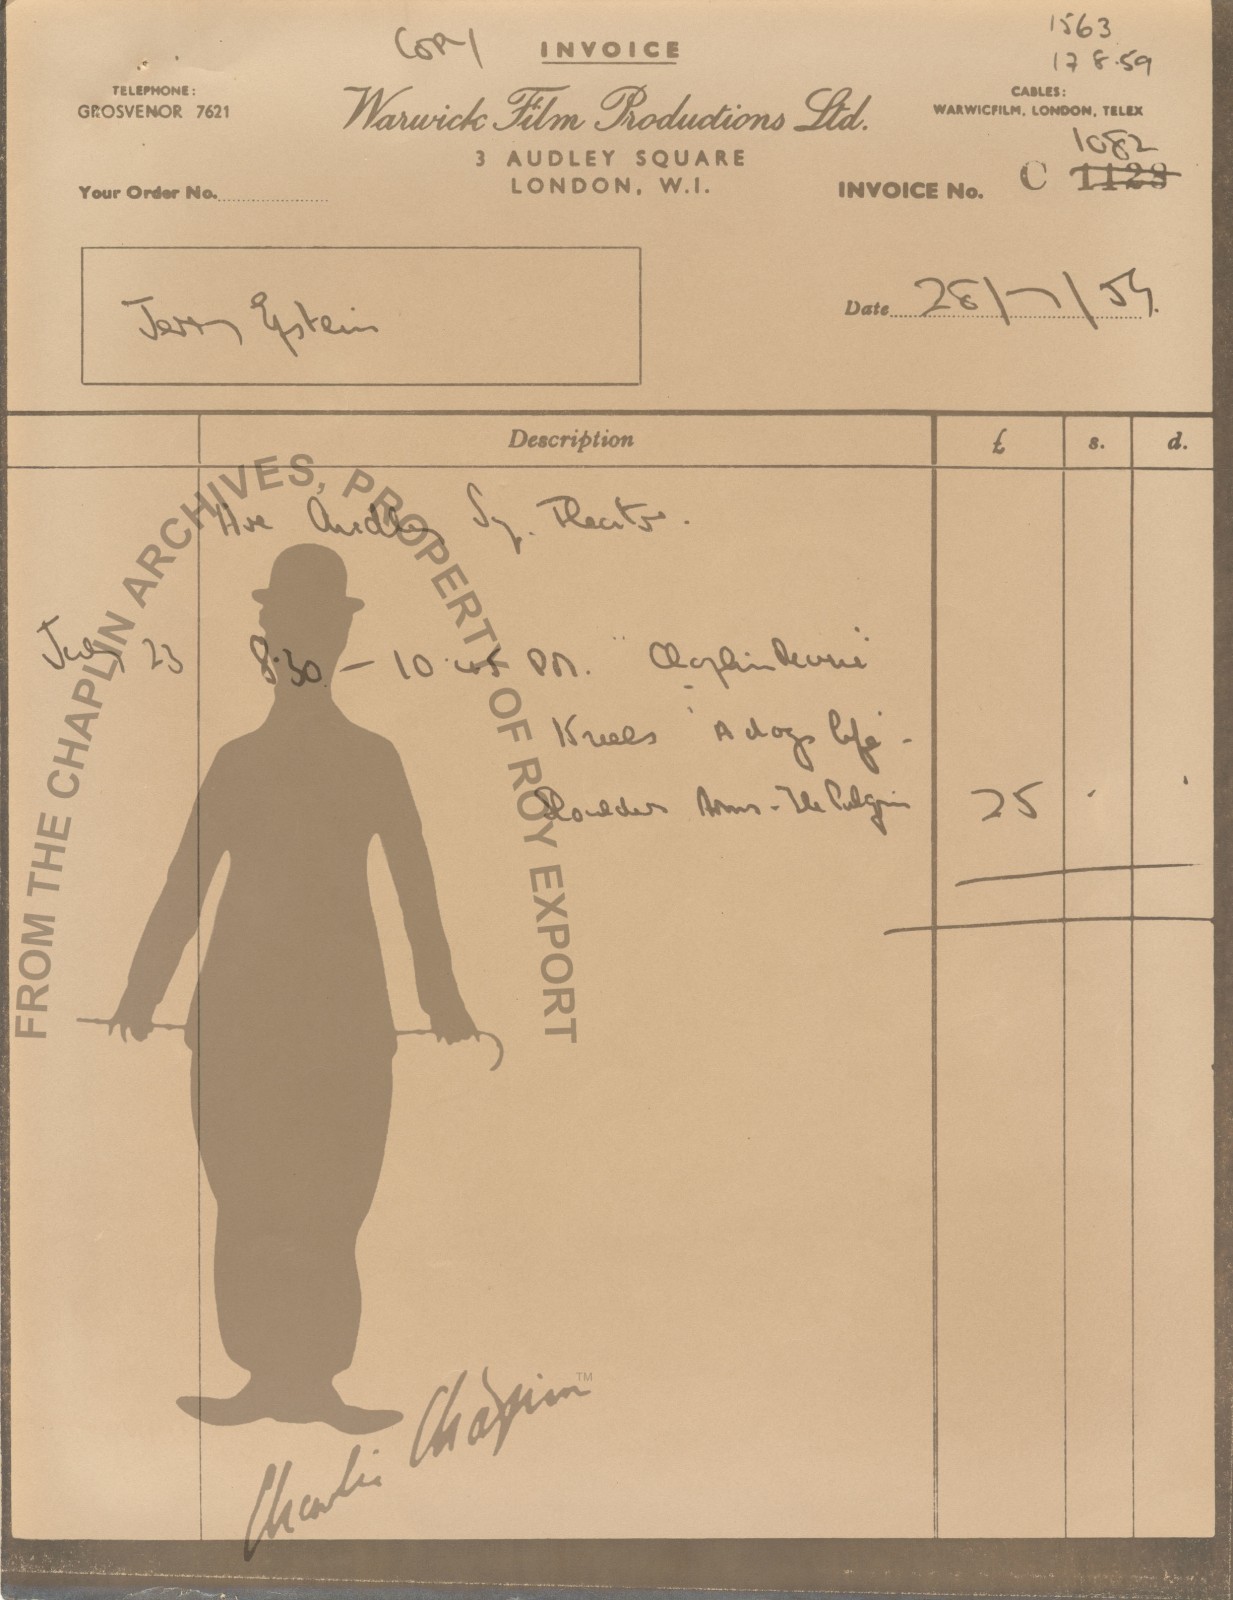 COPY
INVOICE
1563
17 8.59
TELEPHONE:
GROSVENOR 7621
Warwick Film Productions Ltd.
CABLES:
WARWICFILM, LONDON, TELEX
3 AUDLEY SQUARE
LONDON, W.I.
Your Order No.
1082
INVOICE No. C 1123
Jerry Epstein
Date 28/7/59.
Description £ s. d.
Hire Audley Sq. Theatre.
July 23 8.30 – 10.45 PM. "Chaplin Revue"
"A dogs life" -
Shoulder Arms - The Pilgrim 25 . .
FROM THE CHAPLIN ARCHIVES, PROPERTY OF ROY EXPORT
Charlie Chaplin ™